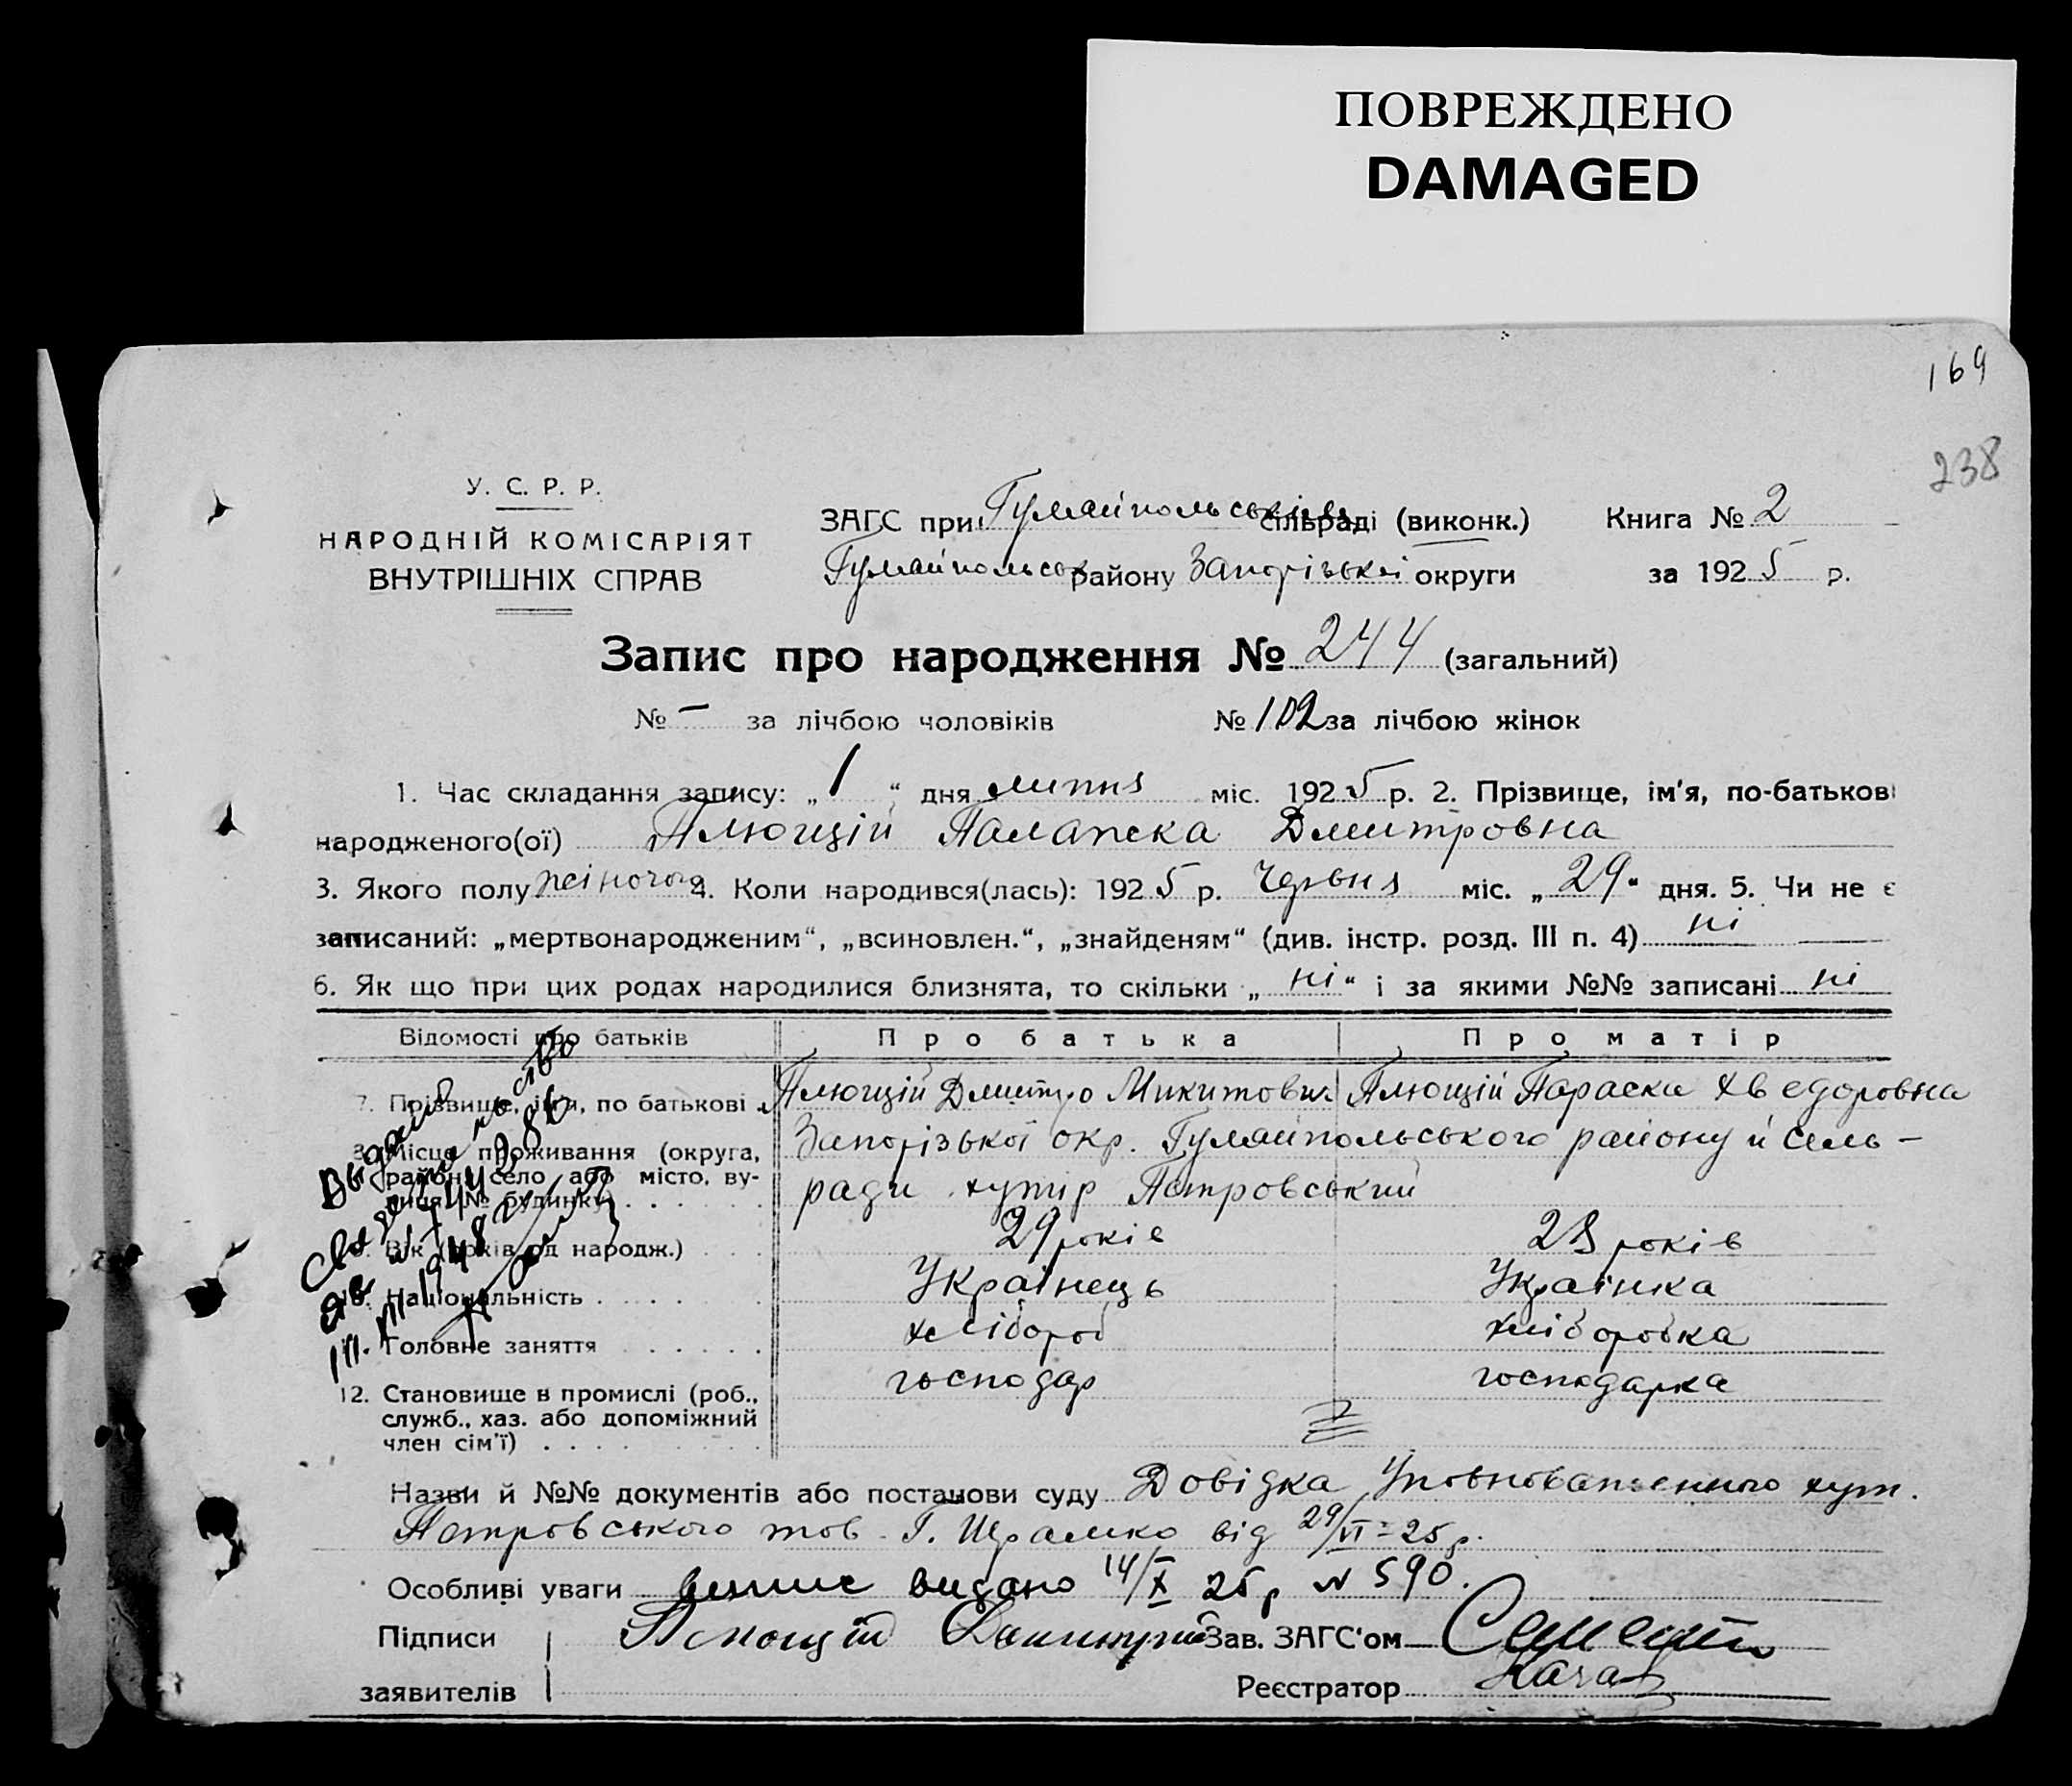 ПОВРЕЖДЕНО
DAMAGED
169
238
У. С. Р. Р.
НАРОДНІЙ КОМІСАРІЯТ
ВНУТРІШНІХ СПРАВ
ЗАГС при Гуляйпольськім сільраді (виконк.)
Гуляйпольськ району Запорізької округи
Книга № 2
за 1925 р.
Запис про народження № 244 (загальний)
№ – за лічбою чоловіків № 102 за лічбою жінок
1. Час складання запису: „ 1 “ дня липня міс. 1925 р. 2. Прізвище, ім'я, по-батькові
народженого(ої) Плющій Палажка Дмитровна
3. Якого полу жіночого 4. Коли народився(лась): 1925 р. Червня міс. „ 29 “ дня. 5. Чи не є
записаний: „мертвонародженим“, „всиновлен.“, „знайденям“ (див. інстр. розд. III п. 4) ні
6. Як що при цих родах народилися близнята, то скільки „ ні “ і за якими №№ записані ні
Відомості про батьків Про батька Про матір
7. Прізвище, ім'я, по батькові Плющій Дмитро Микитович Плющій Параска Хведоровна
8. Місце проживання (округа, Запорізької окр. Гуляйпольського району й сель-
район, село або місто, ву-
лиця, № будинку) ради хутір Петровський
9. Вік (років од народж.) 29 років 28 років
10. Національність Українець Українка
Головне заняття хлібороб хліборобка
12. Становище в промислі (роб., господар господарка
служб., хаз. або допоміжний
член сім'ї)
Выдано
свидетельство
III. VIII 1948
Назви й №№ документів або постанови суду Довідка Уповноваженного хут.
Петровського тов. Г. Шрамко від 29/VI-25 р.
Особливі уваги випис видано 14/X 25 р № 590.
Підписи Плющій Дмитрий Зав. ЗАГС'ом
заявителів Реєстратор